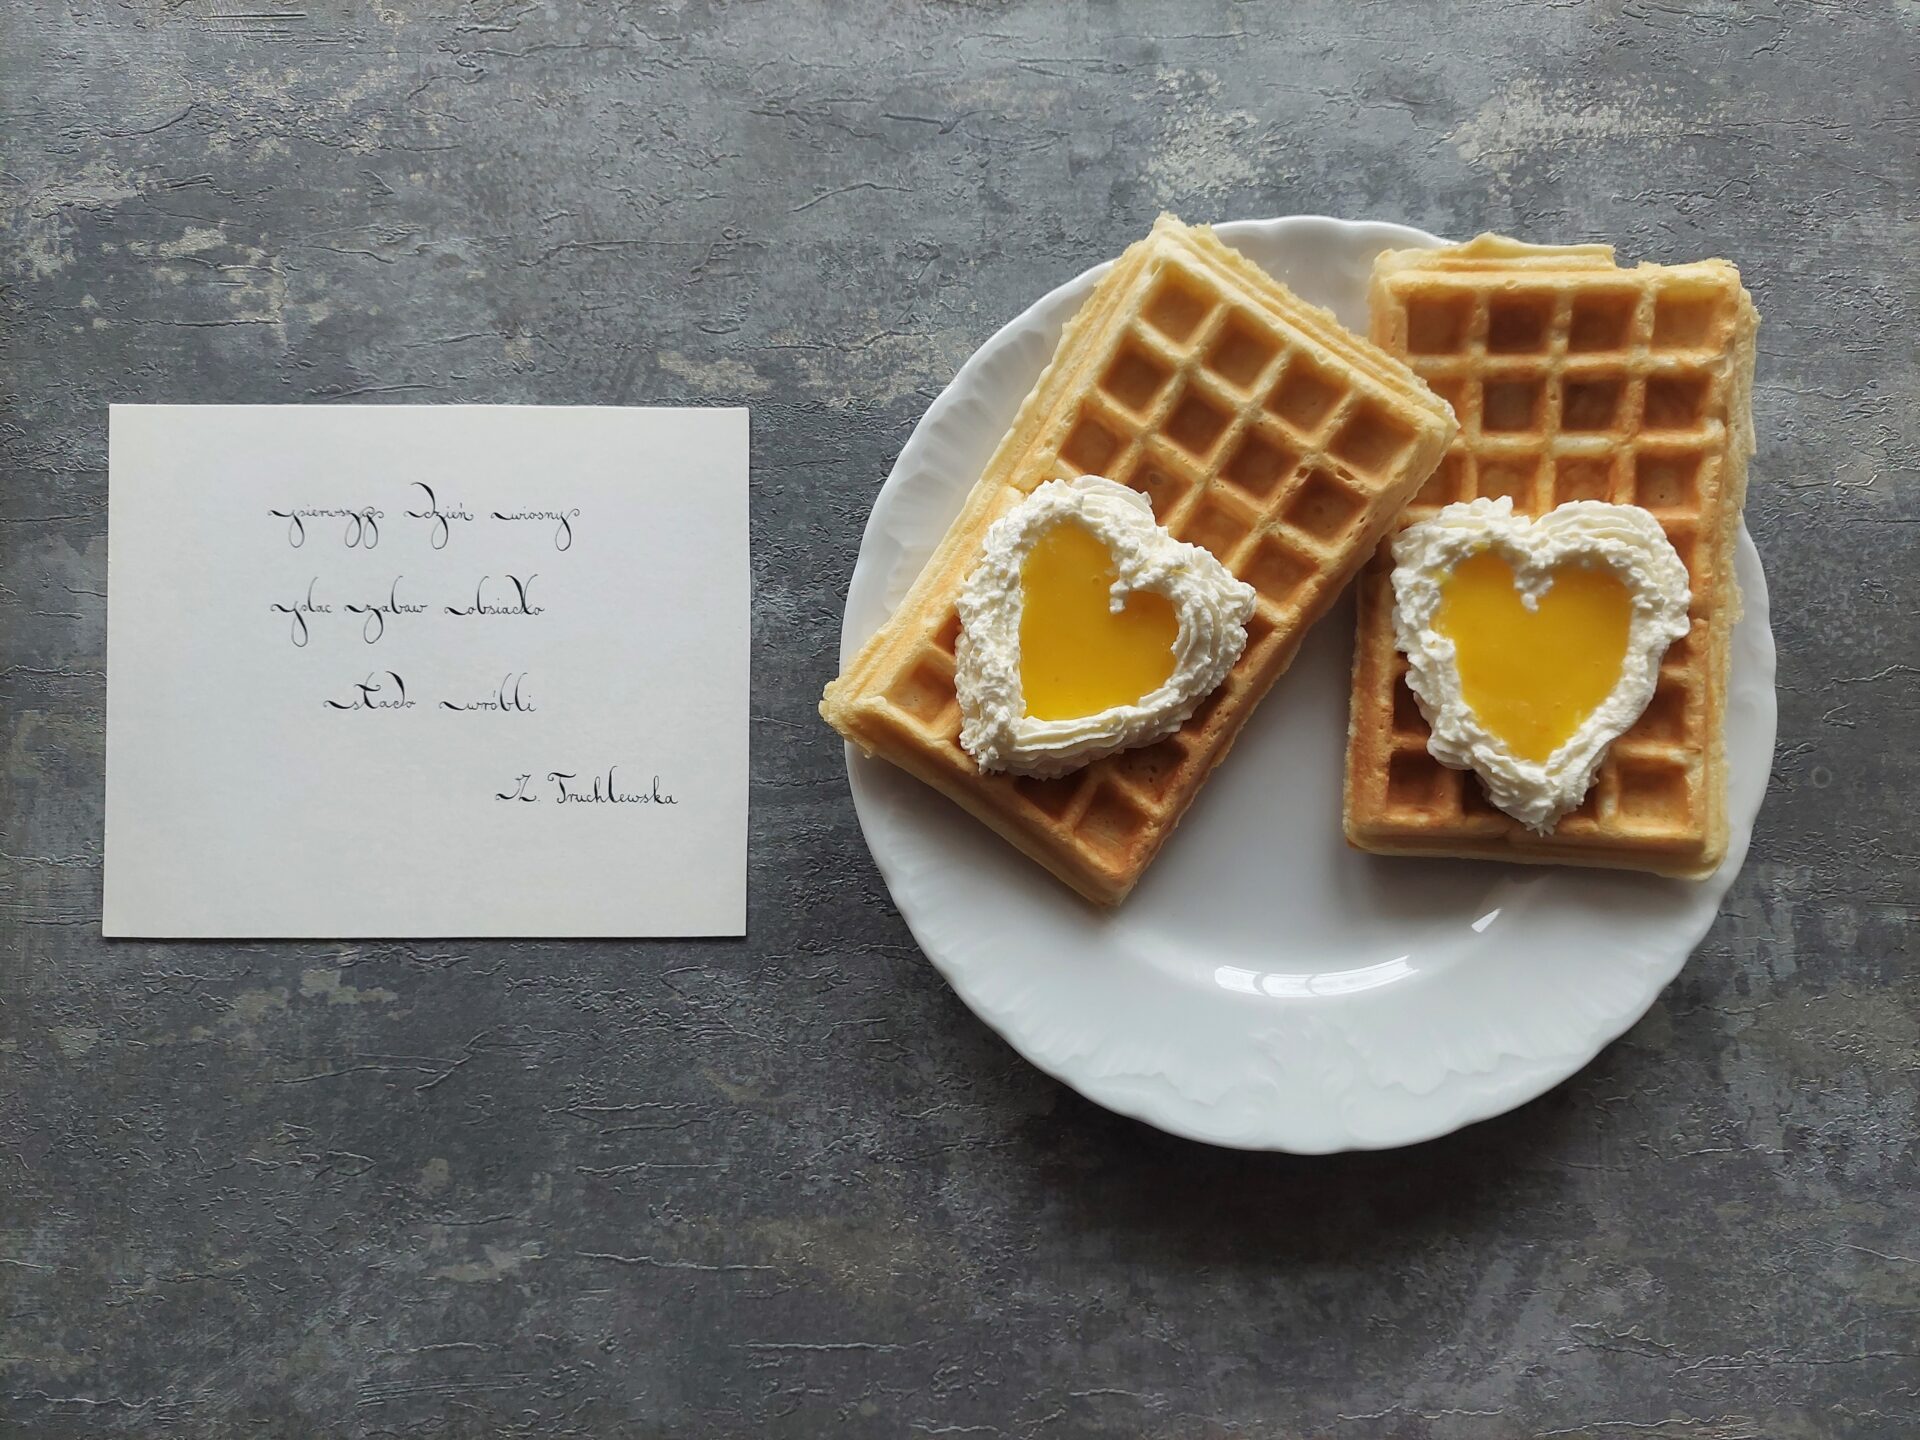 pierwszy dzień wiosny
plac zabaw obsiadło
stado wróbli
Z. Truchlewska